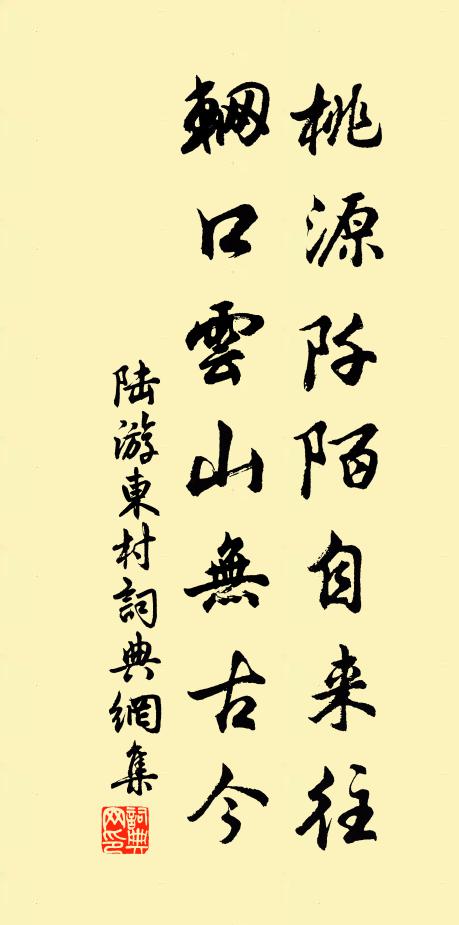 桃源阡陌自来往
輞口雲山無古今
陆游東村詞典網集
詞典网印